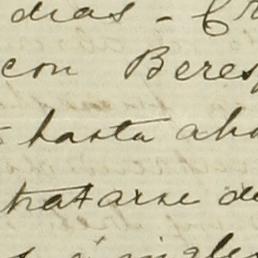 dias - Cr
con Beres
hasta aho
tratarse de
é ingles